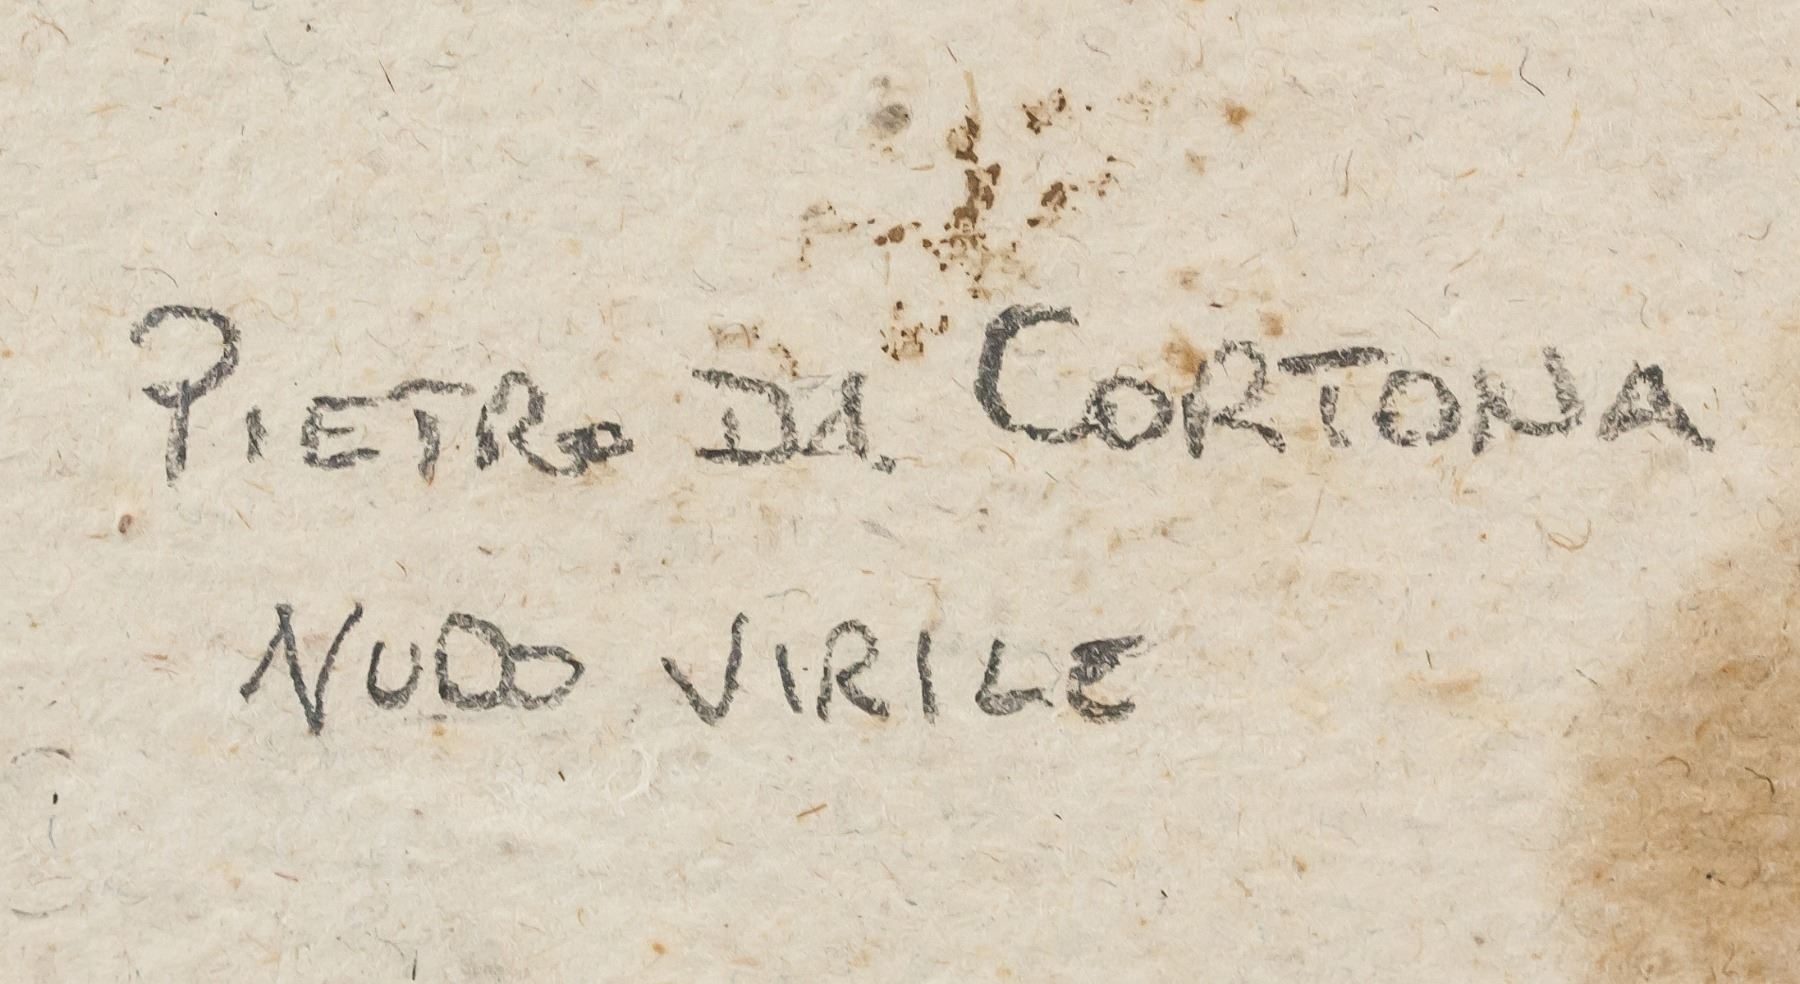 PIETRO DA CORTONA
NUDO VIRILE